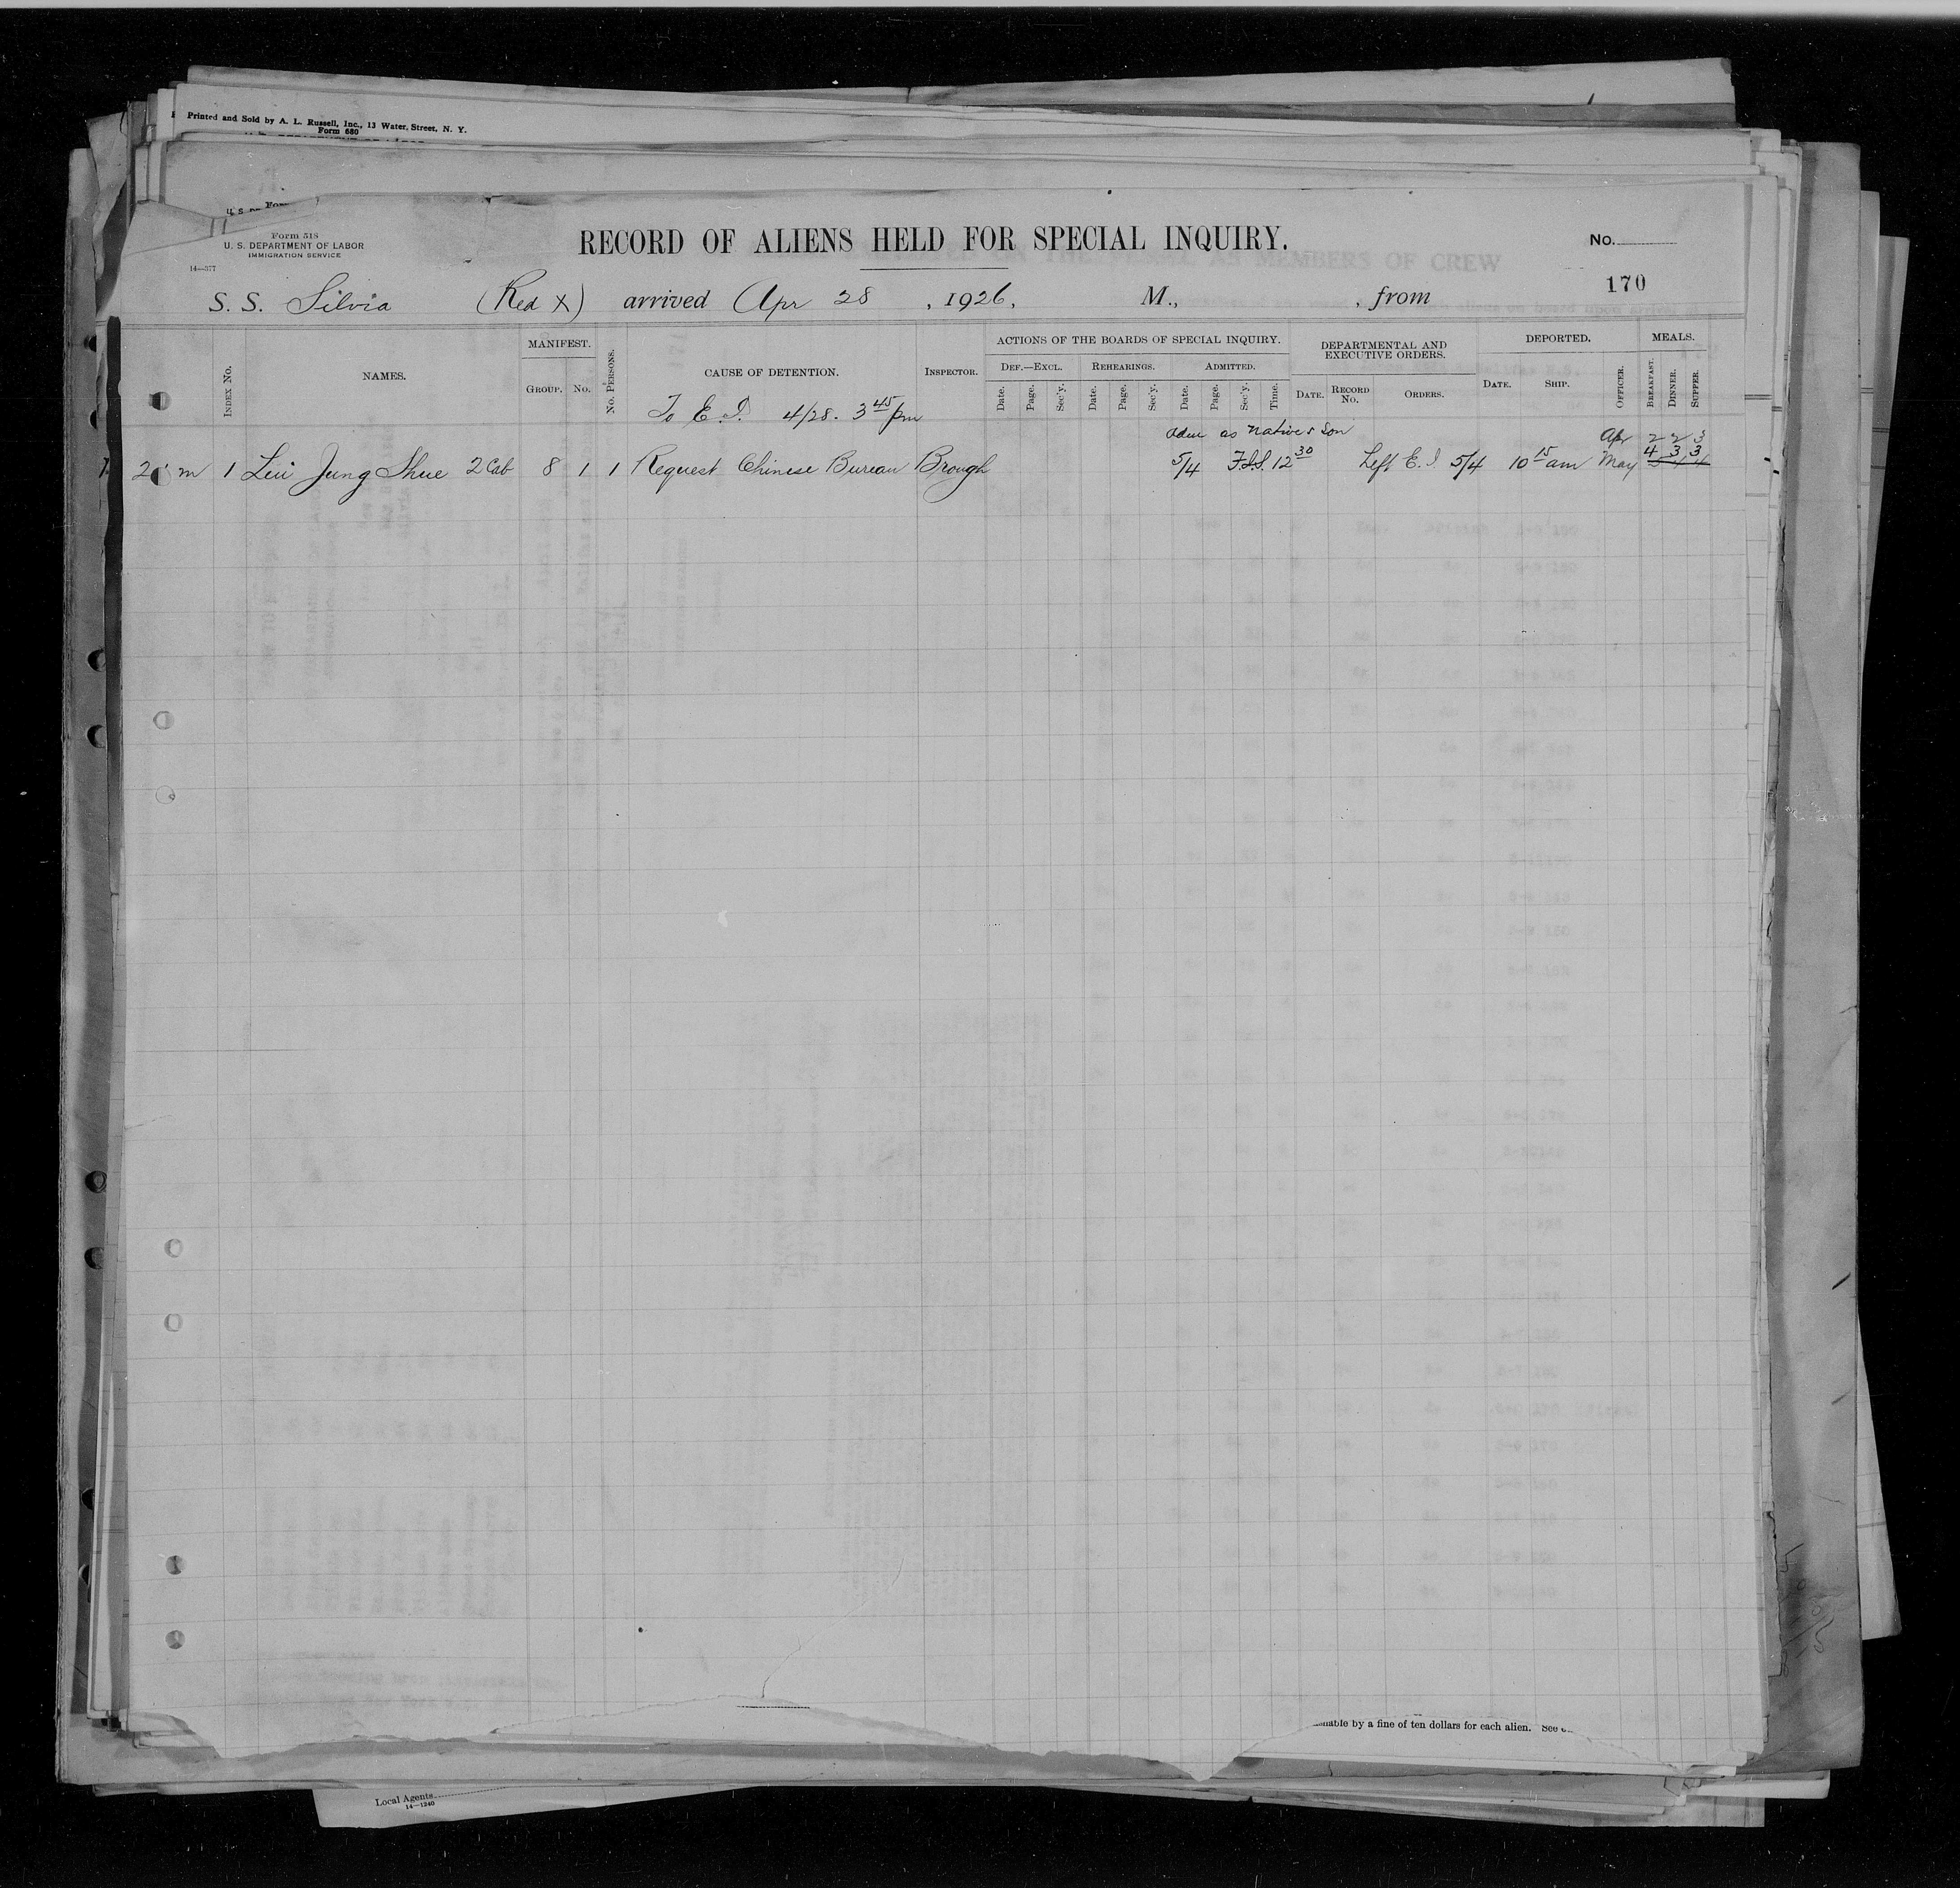 Printed and Sold by A. L. Russell, Inc., 13 Water Street, N. Y.
Form 680
Form 518
U. S. DEPARTMENT OF LABOR
IMMIGRATION SERVICE
14—377
RECORD OF ALIENS HELD FOR SPECIAL INQUIRY.
No.
170
S. S. Silvia (Red X) arrived Apr 28, 1926, M., , from
INDEX No. NAMES. MANIFEST. GROUP. No. No. PERSONS. CAUSE OF DETENTION. INSPECTOR.
ACTIONS OF THE BOARDS OF SPECIAL INQUIRY. DEF.—EXCL. REHEARINGS. ADMITTED.
Date. Page. Sec'y. Date. Page. Sec'y. Date. Page. Sec'y. Time.
DEPARTMENTAL AND EXECUTIVE ORDERS. DATE. RECORD No. ORDERS.
DEPORTED. DATE. SHIP. OFFICER.
MEALS. BREAKFAST. DINNER. SUPPER.
To E. I. 4/28. 3 45 pm
adm as native s son Apr 2 2 3
m 1 Lui Jung Shue 2 Cab 8 1 1 Request Chinese Bureau Brough 5/4 F.S.S. 12 30 Left E. I 5/4 10 15 am May 4 3 3
MEMBERS OF CREW
by a fine of ten dollars for each alien. See
Local Agents
14—1240